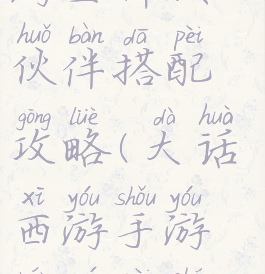 huǒ bàn dā pèi
伙伴搭配
gōng lüè dà huà
攻略(大话
xī yóu shǒu yóu
西游手游